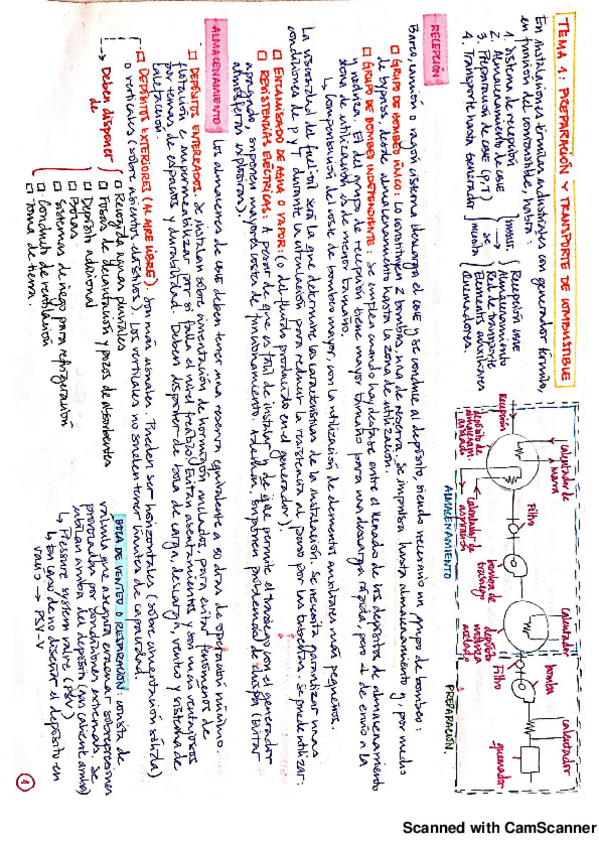 TEMA 1: PREPARACIÓN Y TRANSPORTE DE COMBUSTIBLE
En instalaciones térmicas industriales con generador térmico,
en función del combustible, habrá:
1. Sistema de recepción
2. Almacenamiento de CBLE
3. Preparación de CBLE (p,T)
4. Transporte hasta generador
se necesita
Recepción CBLE
Almacenamiento
Red de transporte
Elementos auxiliares
Quemadores.
Recepción
depósito de almacenam. aislado
calentador de marra
calentador de aspiración
Filtro
bomba de trasiego
depósito nodriza aislado
calentador
Filtro
bomba
calentador
quemador
ALMACENAMIENTO
PREPARACIÓN.
RECEPCIÓN
Barco, camión o vagón cisterna descarga el CBLE y se conduce al depósito, siendo necesario un grupo de bombeo:
GRUPO DE BOMBEO ÚNICO: Lo constituyen 2 bombas, una de reserva. Se impulsa hasta almacenamiento y, por medio
de bypass, desde almacenamiento hasta la zona de utilización.
GRUPO DE BOMBEO INDEPENDIENTE: Se emplea cuando hay desfase entre el llenado de los depósitos de almacenamiento
y nodriza. El del grupo de recepción tiene mayor tamaño para una descarga rápida, pero el de envío a la
zona de utilización es de menor tamaño.
↳ Compensación del coste de bombeo mayor, con la utilización de elementos auxiliares más pequeños.
La viscosidad del fuel-oil será la que determine las características de la instalación. Se necesita garantizar unas
condiciones de P y T durante la circulación para reducir la resistencia al paso por las tuberías. Se puede utilizar:
ENCAMISADO DE AGUA O VAPOR: (o del fluido producido en el generador).
RESISTENCIAS ELÉCTRICAS: A pesar de que es fácil de instalar y de que permite el trabajo con el generador
apagado, suponen mayores costes de funcionamiento. Además, suponen problemas de chispa (evitar
atmósferas explosivas).
ALMACENAMIENTO
Los almacenes de CBLE deben tener una reserva equivalente a 30 días de operación mínimo.
DEPÓSITOS ENTERRADOS: Se instalan sobre cimentación de hormigón anclados, para evitar fenómenos de
flotación (e impermeabilizar por si falla el nivel freático). Evitan asentamientos y son más ventajosos
en términos de espacios y durabilidad. Deben disponer de boca de carga, descarga, venteo y sistema de
calefacción.
DEPÓSITOS EXTERIORES (AL AIRE LIBRE). Son más usuales. Pueden ser horizontales (sobre cimentación sólida)
o verticales (sobre asientos aislados). Los verticales no suelen tener límites de capacidad.
Deben disponer de
Recogida aguas pluviales
Fosos de decantación y pozos de absorbentes
Depósito adicional
Bocas
Sistemas de riego para refrigeración
Conducto de ventilación
Toma de tierra.
BOCA DE VENTEO O RESPIRACIÓN: consta de
válvula que asegura evacuar sobrepresiones
provocadas por condiciones extremas. Se
ubican arriba del depósito (gas caliente arriba)
↳ Pressure system valve (PSV)
↳ En caso de no diseñar el depósito en
vacío → PSV-V
1
Scanned with CamScanner